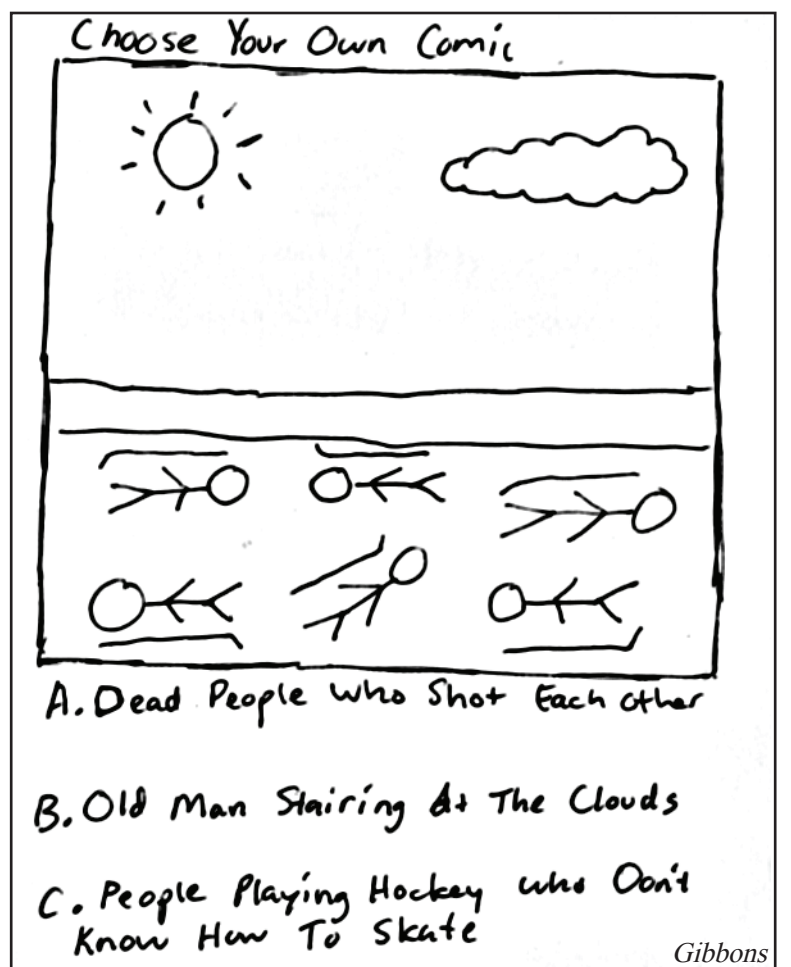 Choose Your Own Comic
A. Dead People Who Shot Each Other
B. Old Man Stairing At The Clouds
C. People Playing Hockey who Don't
Know How To Skate
Gibbons